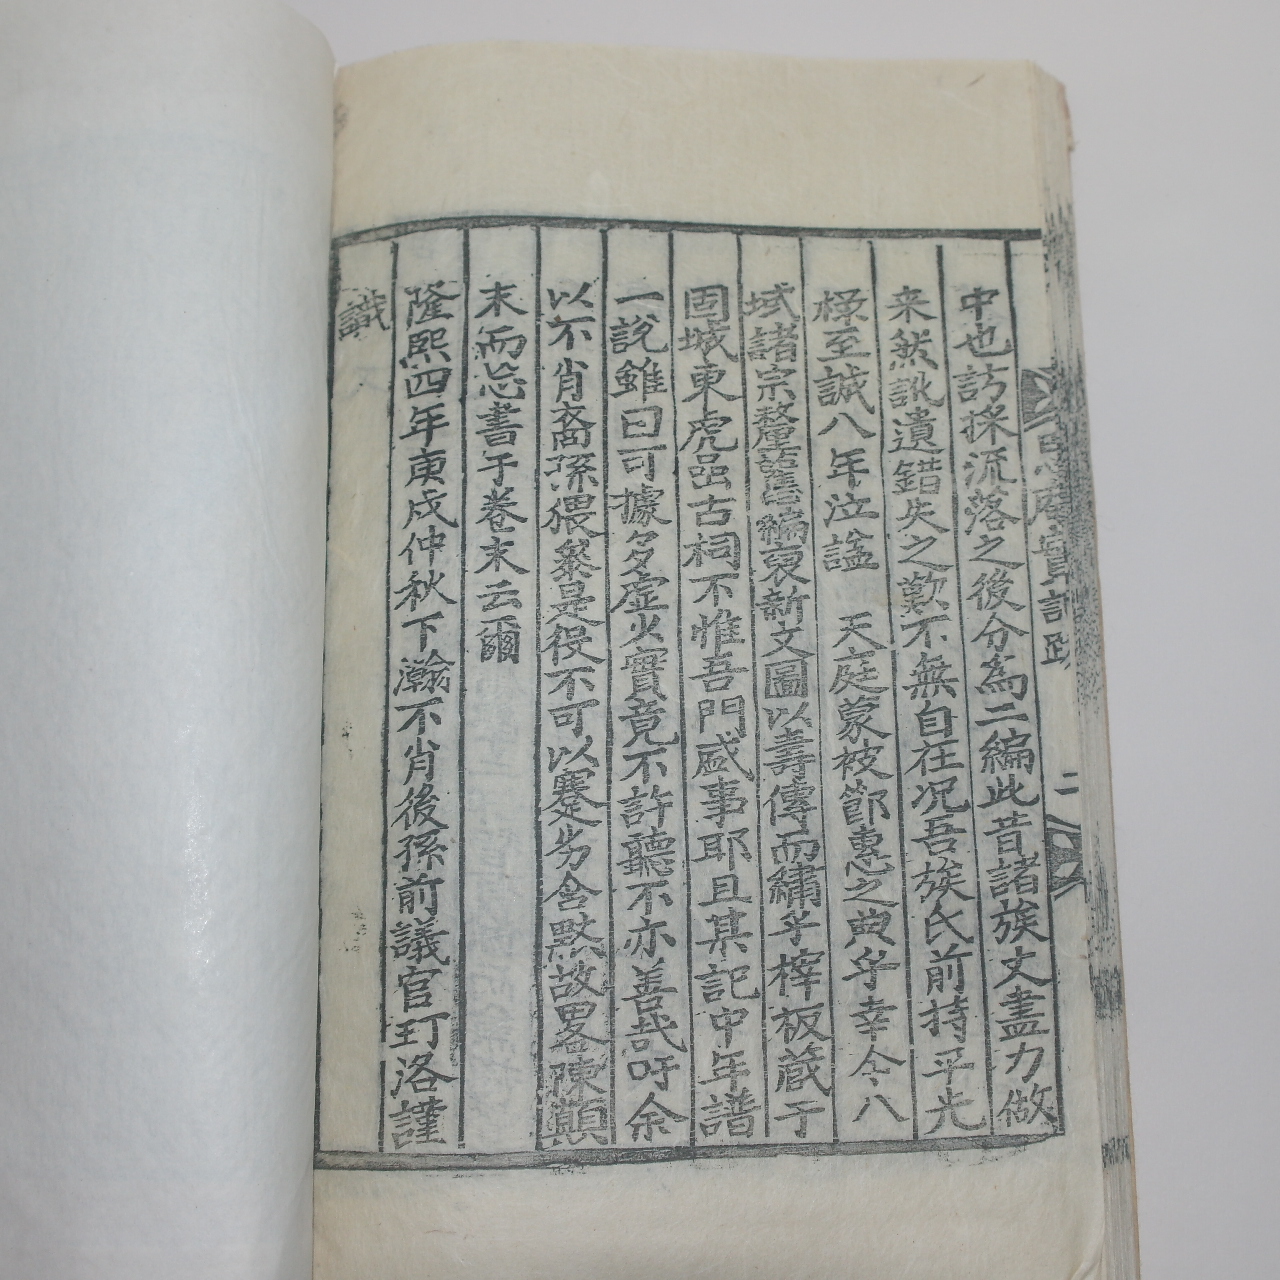 思庵實記跋
二
中也訪採流落之後分為二編此昔諸族丈盡力做
来然訛遺錯失之歎不無自在况吾族氏前持平光
檡至誠八年泣謚 天庭蒙被節惠之典乎幸今八
域諸宗釐舊編裒新文圖以壽傳而繡乎梓板蔵于
固城東虎嵒古祠不惟吾門盛事耶且某記中年譜
一說雖曰可據多虛少實竟不許聽不亦善哉吁余
以不肖裔孫猥叅是役不可以蹇劣含默故畧陳顛
末而忘書于卷末云爾
隆熙四年庚戌仲秋下瀚不肖後孫前議官玎洛謹
識